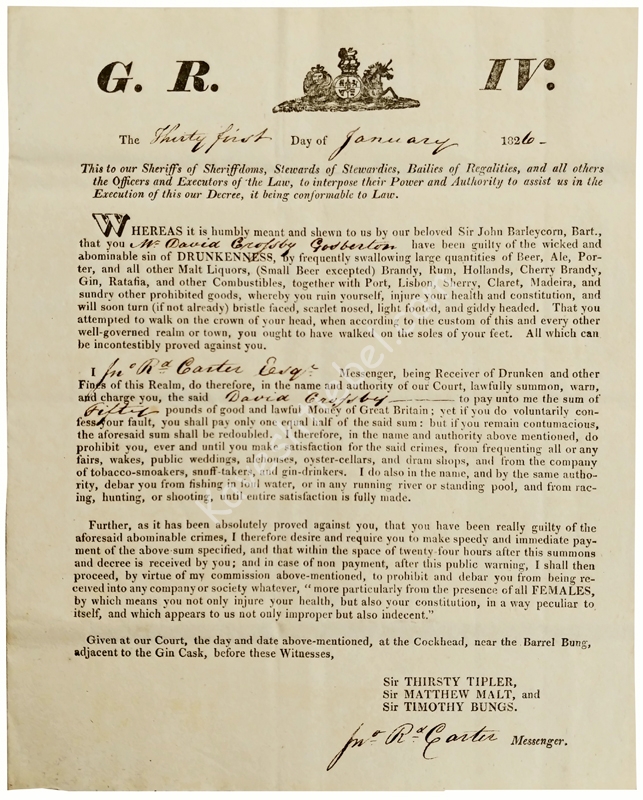 G. R. IV.
The Thirty first Day of January 1826-
This to our Sheriffs of Sheriffdoms, Stewards of Stewardies, Bailies of Regalities, and all others
the Officers and Executors of the Law, to interpose their Power and Authority to assist us in the
Execution of this our Decree, it being conformable to Law.
WHEREAS it is humbly meant and shewn to us by our beloved Sir John Barleycorn, Bart.,
that you Mr David Crossby Gosberton have been guilty of the wicked and
abominable sin of DRUNKENNESS, by frequently swallowing large quantities of Beer, Ale, Por-
ter, and all other Malt Liquors, (Small Beer excepted) Brandy, Rum, Hollands, Cherry Brandy,
Gin, Ratafia, and other Combustibles, together with Port, Lisbon, Sherry, Claret, Madeira, and
sundry other prohibited goods, whereby you ruin yourself, injure your health and constitution, and
will soon turn (if not already) bristle faced, scarlet nosed, light footed, and giddy headed. That you
attempted to walk on the crown of your head, when according to the custom of this and every other
well-governed realm or town, you ought to have walked on the soles of your feet. All which can
be incontestibly proved against you.
I Jno Rd Carter Esqr Messenger, being Receiver of Drunken and other
Fines of this Realm, do therefore, in the name and authority of our Court, lawfully summon, warn,
and charge you, the said David Crossby to pay unto me the sum of
Fifty pounds of good and lawful Money of Great Britain; yet if you do voluntarily con-
fess your fault, you shall pay only one equal half of the said sum: but if you remain contumacious,
the aforesaid sum shall be redoubled. I therefore, in the name and authority above mentioned, do
prohibit you, ever and until you make satisfaction for the said crimes, from frequenting all or any
fairs, wakes, public weddings, alehouses, oyster-cellars, and dram shops, and from the company
of tobacco-smoakers, snuff-takers, and gin-drinkers. I do also in the name, and by the same autho-
rity, debar you from fishing in foul water, or in any running river or standing pool, and from rac-
ing, hunting, or shooting, until entire satisfaction is fully made.
Further, as it has been absolutely proved against you, that you have been really guilty of the
aforesaid abominable crimes, I therefore desire and require you to make speedy and immediate pay-
ment of the above sum specified, and that within the space of twenty-four hours after this summons
and decree is received by you; and in case of non payment, after this public warning, I shall then
proceed, by virtue of my commission above-mentioned, to prohibit and debar you from being re-
ceived into any company or society whatever, "more particularly from the presence of all FEMALES,
by which means you not only injure your health, but also your constitution, in a way peculiar to
itself, and which appears to us not only improper but also indecent."
Given at our Court, the day and date above-mentioned, at the Cockhead, near the Barrel Bung,
adjacent to the Gin Cask, before these Witnesses,
Sir THIRSTY TIPLER,
Sir MATTHEW MALT, and
Sir TIMOTHY BUNGS.
Jno Rd Carter Messenger.